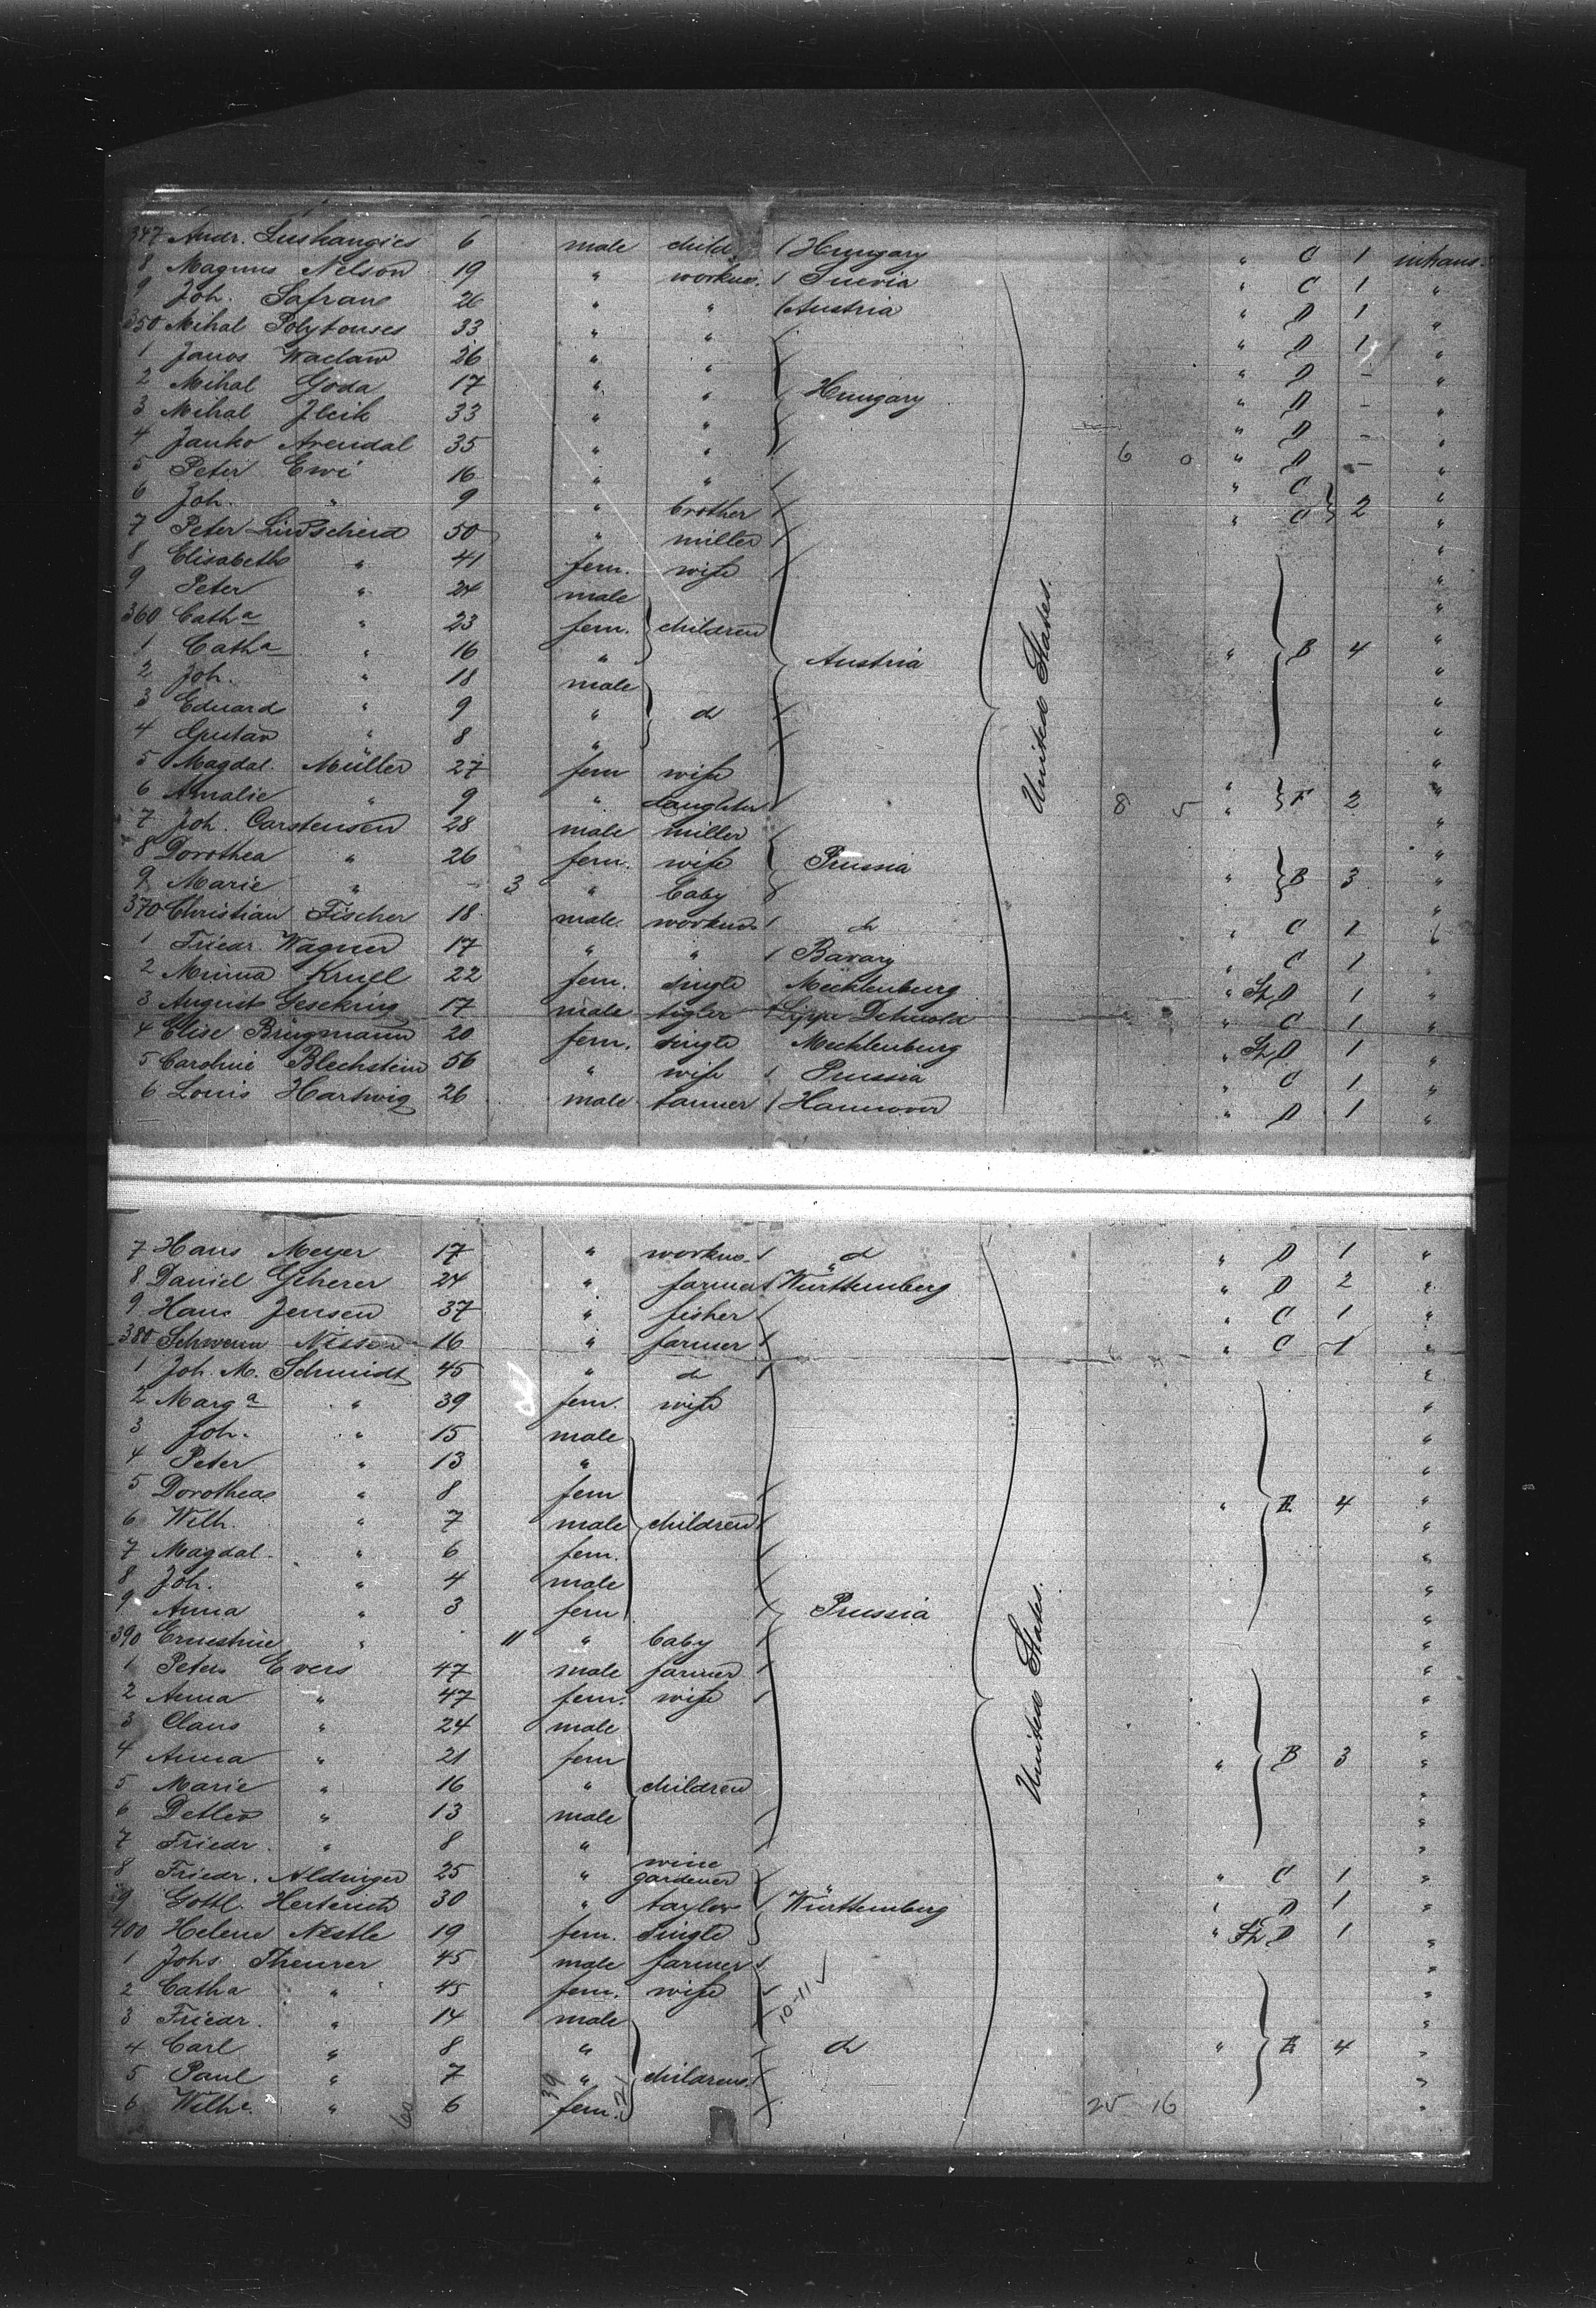 347 Andr. Lushangics 6 male child Hungary " C 1 inhans.
8 Magnus Nelson 19 " workm. Suevia " C 1 "
9 Joh. Safranc 26 " " Austria " D 1 "
350 Mihal Polytonses 33 " " " D 1 "
1 Janos Waclaw 26 " " " D - "
2 Mihal Goda 17 " " Hungary " D - "
3 Mihal Jlcik 33 " " " D - "
4 Janko Arendal 35 " " 6 0 " D - "
5 Peter Ewi 16 " " " C "
6 Joh. " 9 " brother " C 2 "
7 Peter Lindscheid 50 " miller "
8 Elisabeth " 41 fem. wife "
9 Peter " 24 male "
360 Catha " 23 fem. children "
1 Catha " 16 " Austria " B 4 "
2 Joh. " 18 male "
3 Eduard " 9 " d "
4 Gustav " 8 " "
5 Magdal. Müller 27 fem wife "
6 Amalie " 9 " daughter 8 5 " F 2 "
7 Joh. Carstensen 28 male miller "
8 Dorothea " 26 fem. wife Prussia "
9 Marie " - 3 " baby " B 3 "
370 Christian Fischer 18 male workm. d " C 1 "
1 Friedr. Wagner 17 " " Bavary " C 1 "
2 Minna Krull 22 fem. single Mecklenburg " D 1 "
3 August Gesekrig 17 male tigler Lippe Detmold " C 1 "
4 Elise Brügmann 20 fem. single Mecklenburg " D 1 "
5 Caroline Blechstein 56 " wife Prussia " C 1 "
6 Louis Hartwig 26 male tanner Hannover " D 1 "
United States.
7 Hans Meyer 17 " workm. d " D 1 "
8 Daniel Scherer 24 " farmer Württemberg " D 2 "
9 Hans Jensen 37 " fisher " C 1 "
380 Schwenn Nissen 16 " farmer " C 1 "
1 Joh. M. Schmidt 45 " d "
2 Marga " 39 fem. wife "
3 Joh. " 15 male "
4 Peter " 13 " "
5 Dorothea " 8 fem "
6 Wilh. " 7 male children " E 4 "
7 Magdal. " 6 fem. "
8 Joh. " 4 male "
9 Anna " 3 fem Prussia "
390 Ernestine " 11 " baby "
1 Peter Evers 47 male farmer "
2 Anna " 47 fem. wife "
3 Claus " 24 male "
4 Anna " 21 fem " B 3 "
5 Marie " 16 " children "
6 Detlev " 13 male "
7 Friedr. " 8 " "
8 Friedr. Aldinger 25 " wine gardener " C 1 "
9 Gottl. Herterich 30 " taylor Württemberg " D 1 "
400 Helene Nestle 19 fem. single " D 1 "
1 Johs Theurer 45 male farmer "
2 Catha " 45 fem. wife 10-11 "
3 Friedr. " 14 male "
4 Carl " 8 " d " E 4 "
5 Paul " 7 39 " children "
6 Wilhe. " 60 6 fem. 21 25 16 "
United States.